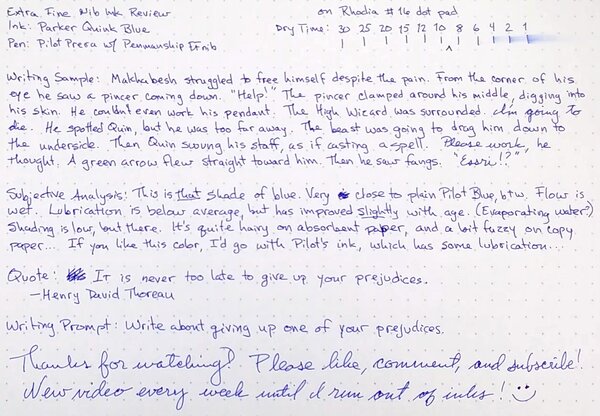 Extra Fine Nib Ink Review
on Rhodia #16 dot pad
Ink: Parker Quink Blue
Dry Time: 30 25 20 15 12 10 8 6 4 2 1
Pen: Pilot Prera w/ Penmanship EF nib
Writing Sample: Makhabesh struggled to free himself despite the pain. From the corner of his
eye he saw a pincer coming down. "Help!" The pincer clamped around his middle, digging into
his skin. He couldn't even work his pendant. The High Wizard was surrounded. I'm going to
die. He spotted Quin, but he was too far away. The beast was going to drag him down to
the underside. Then Quin swung his staff, as if casting a spell. Please work, he
thought. A green arrow flew straight toward him. Then he saw fangs. "Essri!?"
Subjective Analysis: This is that shade of blue. Very close to plain Pilot Blue, btw. Flow is
wet. Lubrication is below average, but has improved slightly with age. (Evaporating water?)
Shading is low, but there. It's quite hairy on absorbent paper, and a bit fuzzy on copy
paper... If you like this color, I'd go with Pilot's ink, which has some lubrication...
Quote: It is never too late to give up your prejudices.
—Henry David Thoreau
Writing Prompt: Write about giving up one of your prejudices.
Thanks for watching! Please like, comment, and subscribe!
New video every week until I run out of inks! :)